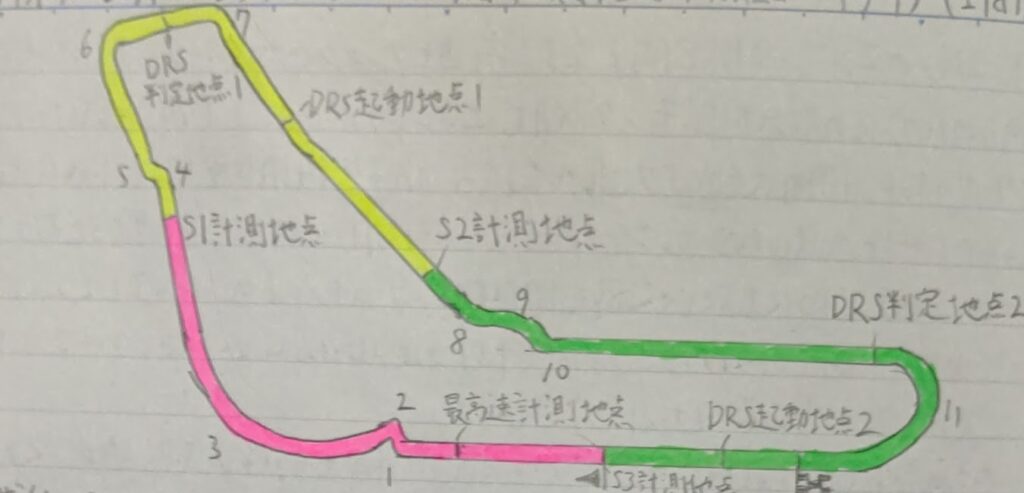 6
7
DRS
判定地点1
DRS起動地点1
5
4
S1計測地点
S2計測地点
9
8
10
DRS判定地点2
2
最高速計測地点
DRS起動地点2
11
3
1
S3計測地点